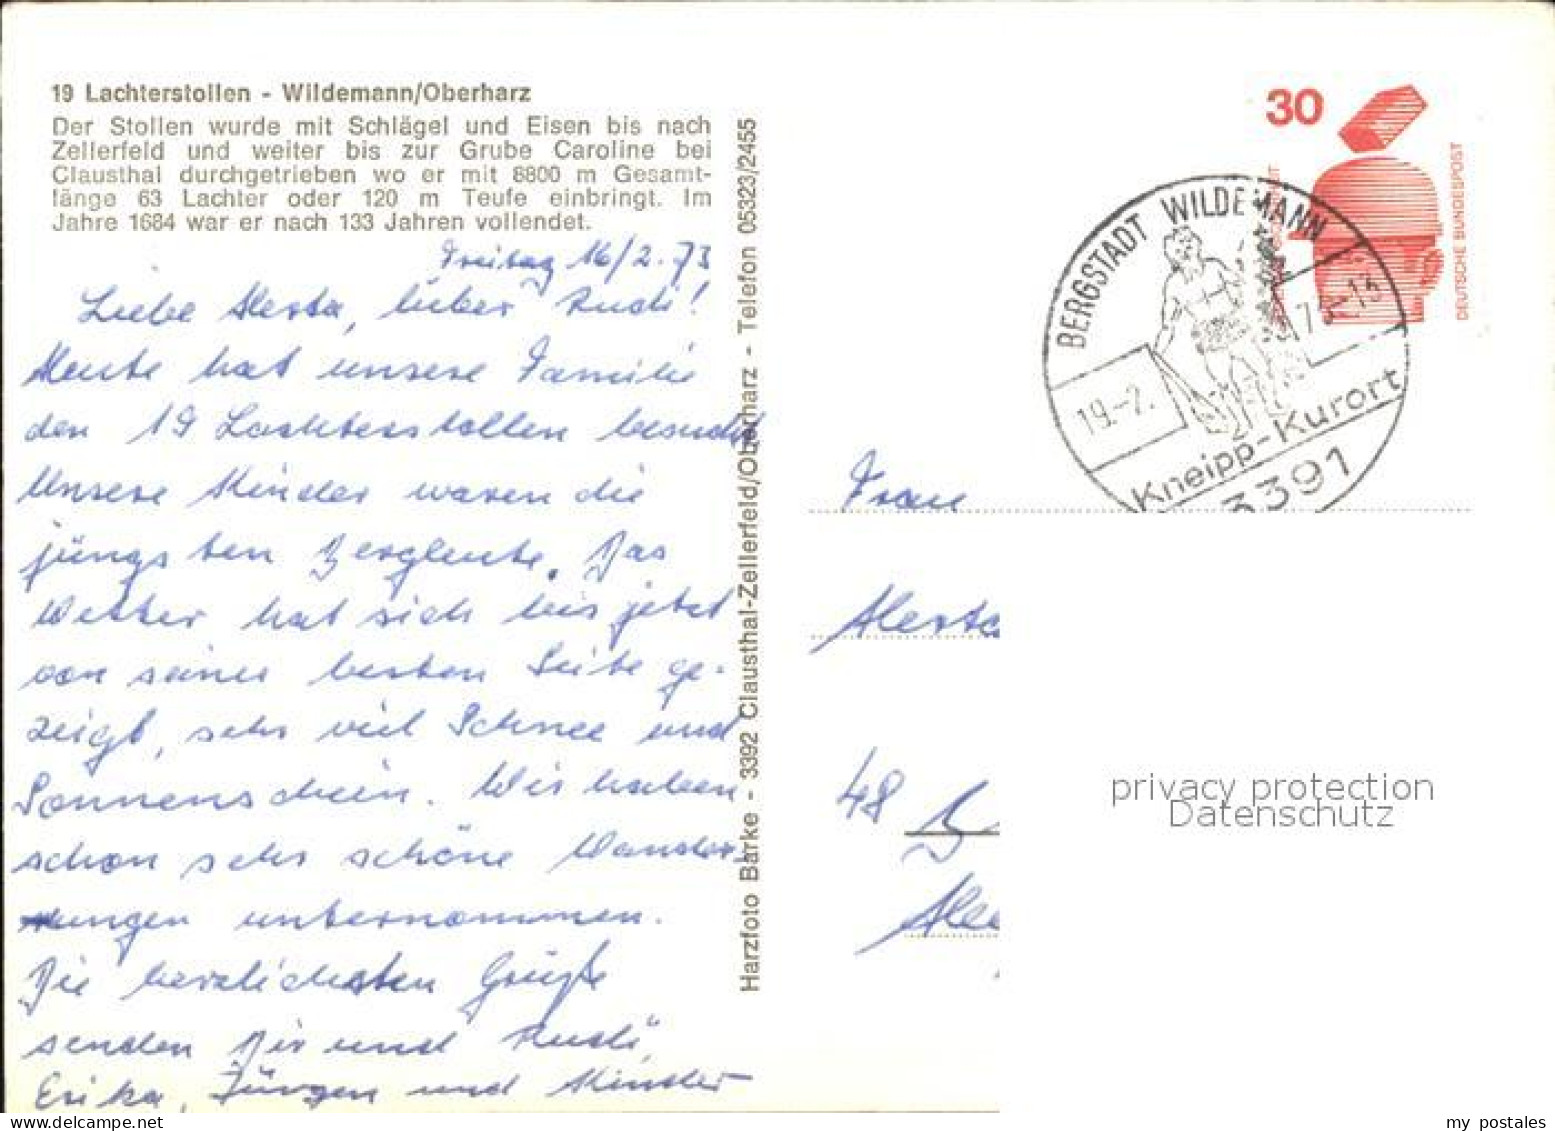 19 Lachterstollen - Wildemann/Oberharz
Der Stollen wurde mit Schlägel und Eisen bis nach
Zellerfeld und weiter bis zur Grube Caroline bei
Clausthal durchgetrieben wo er mit 8800 m Gesamt-
länge 63 Lachter oder 120 m Teufe einbringt. Im
Jahre 1684 war er nach 133 Jahren vollendet.
Freitag 16/2.73
Liebe Herta, lieber Rudi!
Heute hat unsere Familie
den 19 Lachterstollen besucht
Unsere Kinder waren die
jüngsten Bergleute. Das
Wetter hat sich bis jetzt
von seiner besten Seite ge-
zeigt, sehr viel Schnee und
Sonnenschein. Wir haben
schon sehr schöne Wander
ungen unternommen.
Die herzlichsten Grüße
senden Dir und Rudi,
Erika, Jürgen und Kinder
Harzfoto Barke - 3392 Clausthal-Zellerfeld/Oberharz - Telefon 05323/2455
30
DEUTSCHE BUNDESPOST
BERGSTADT WILDEMANN
19.-2.
Kneipp-Kurort
3391
Frau
Herta
48
privacy protection
Datenschutz
my postales